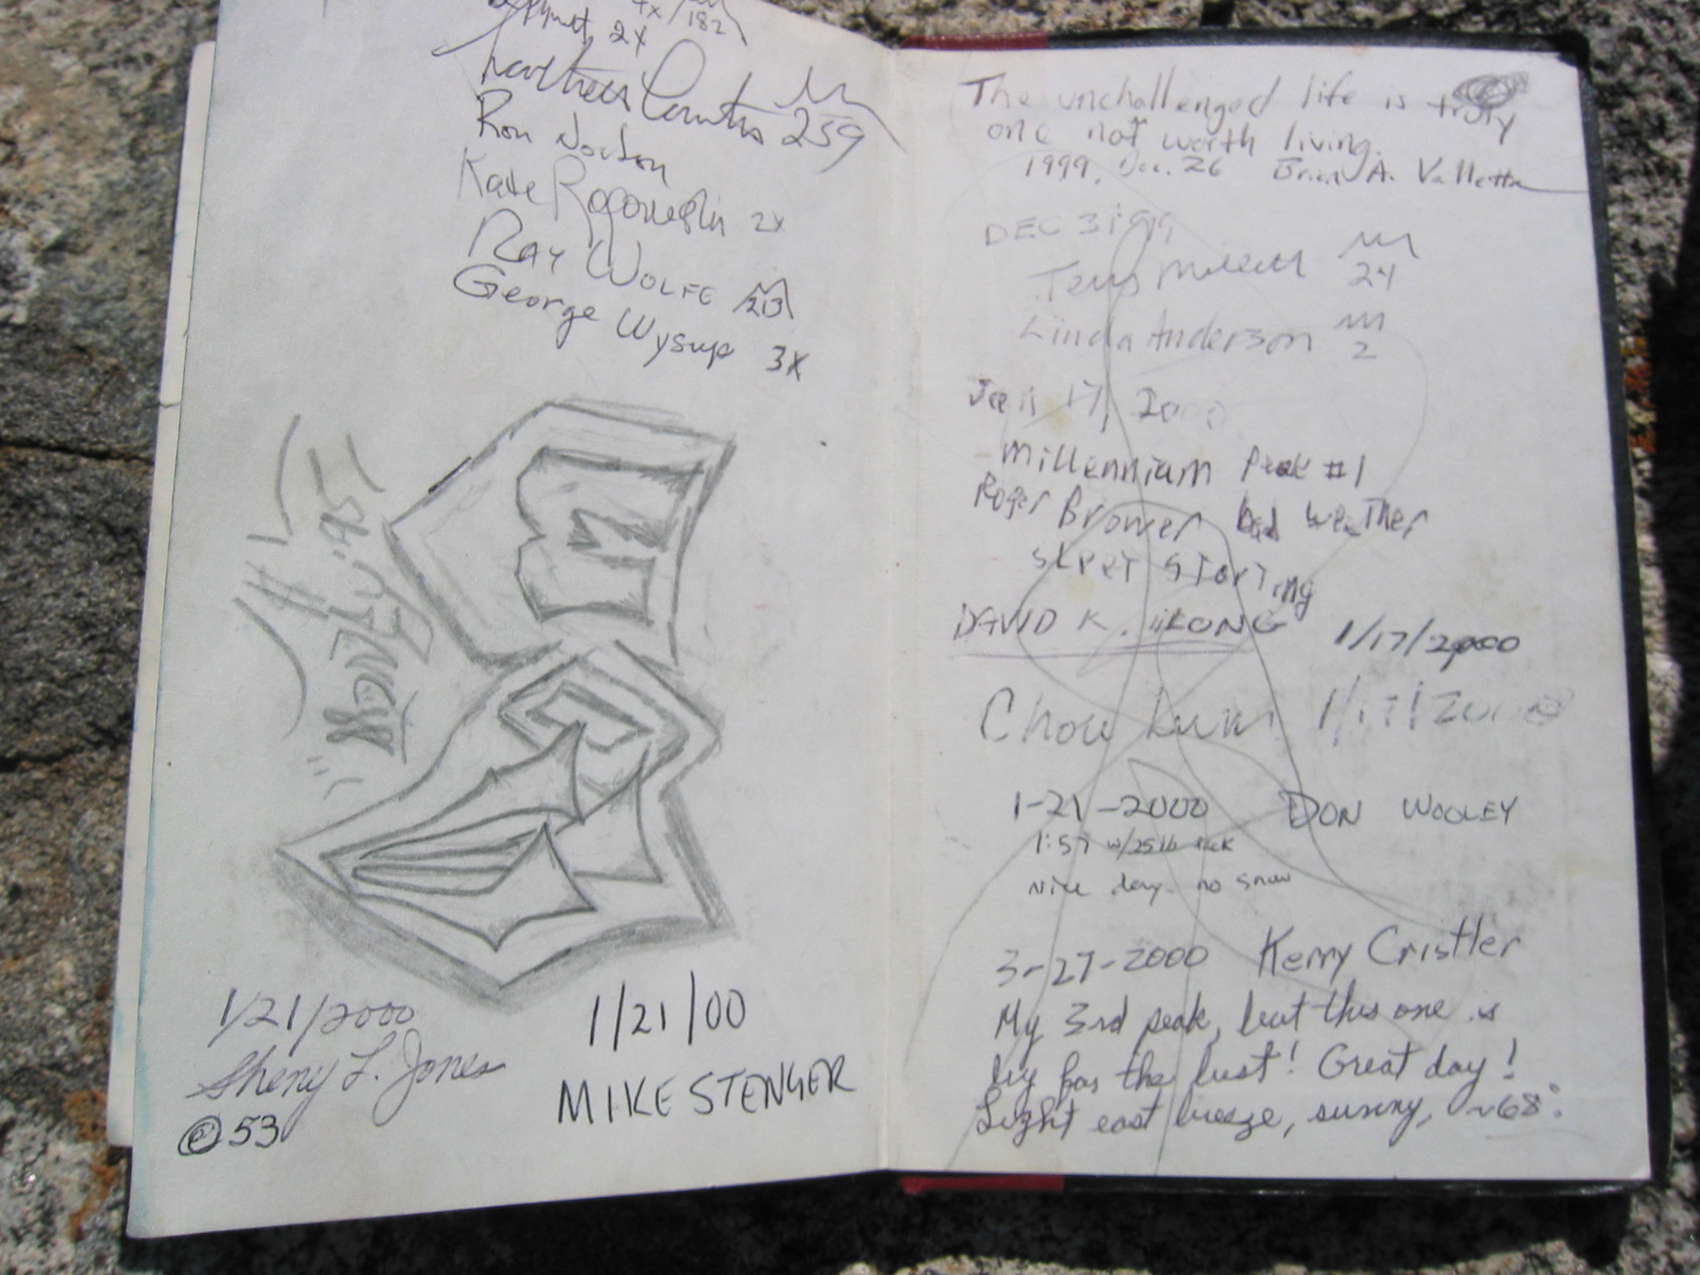 4x/182
2x
259
Ron Norton
Kate 2x
RAY WOLFE 213
George Wysup 3x
1/21/2000
Sherry L. Jones
© 53
1/21/00
MIKE STENGER
The unchallenged life is truly
one not worth living.
1999, Dec. 26 Brian A. Valletta
DEC 31 99
24
Linda Anderson 2
Jan 17, 2000
Millennium Peak #1
Roger Brower bad weather
sleet starting
DAVID K. WONG 1/17/2000
Chou 1/17/2000
1-21-2000 DON WOOLEY
1:57 w/25 lb pack
Nice day. no snow
3-27-2000 Kerry Cristler
My 3rd peak, but this one is
by far the best! Great day!
Light east breeze, sunny, ~68°.